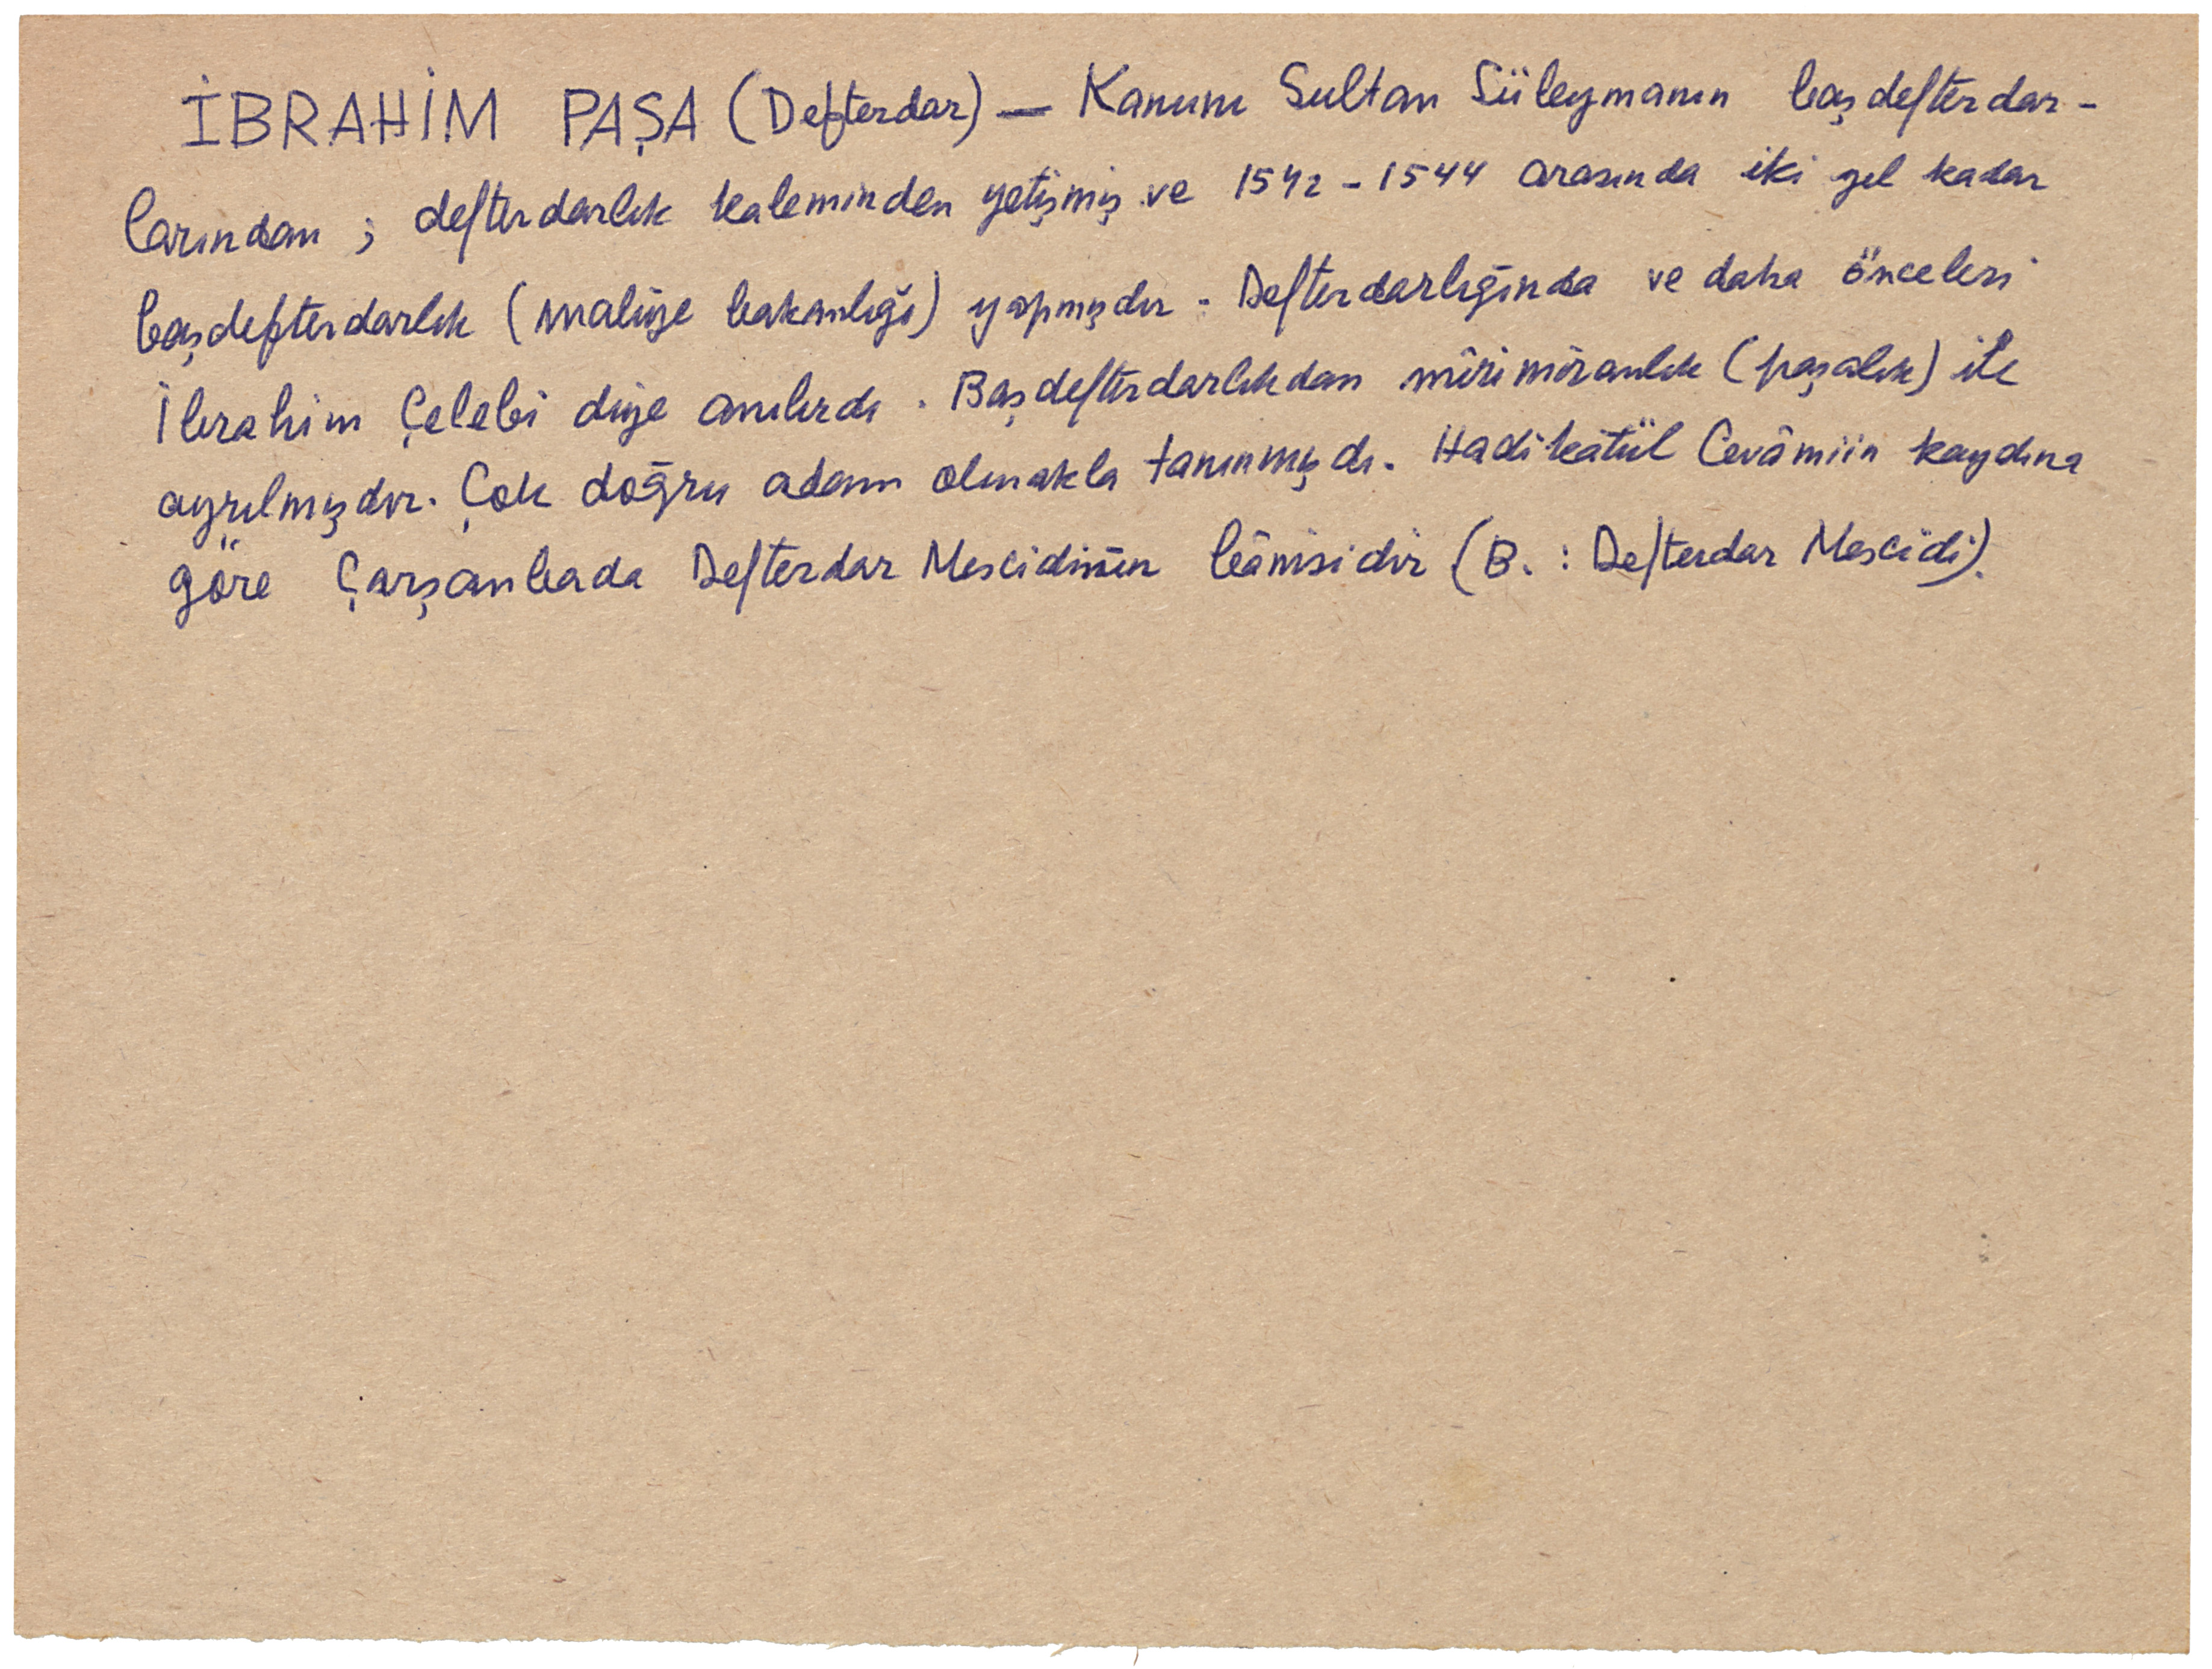 İBRAHİM PAŞA (Defterdar) — Kanunı Sultan Süleymanın başdefterdar-
larından ; defterdarlık kaleminden yetişmiş ve 1542 - 1544 arasında iki yıl kadar
başdefterdarlık (maliye bakanlığı) yapmışdır. Defterdarlığında ve daha önceleri
İbrahim Çelebi diye anılırdı. Başdefterdarlıkdan mîrimîranlık (paşalık) ile
ayrılmışdır. Çok doğru adam olmakla tanınmışdı. Hadîkatül Cevâmiin kaydına
göre Çarşanbada Defterdar Mescidinin bânisidir (B. : Defterdar Mescidi).